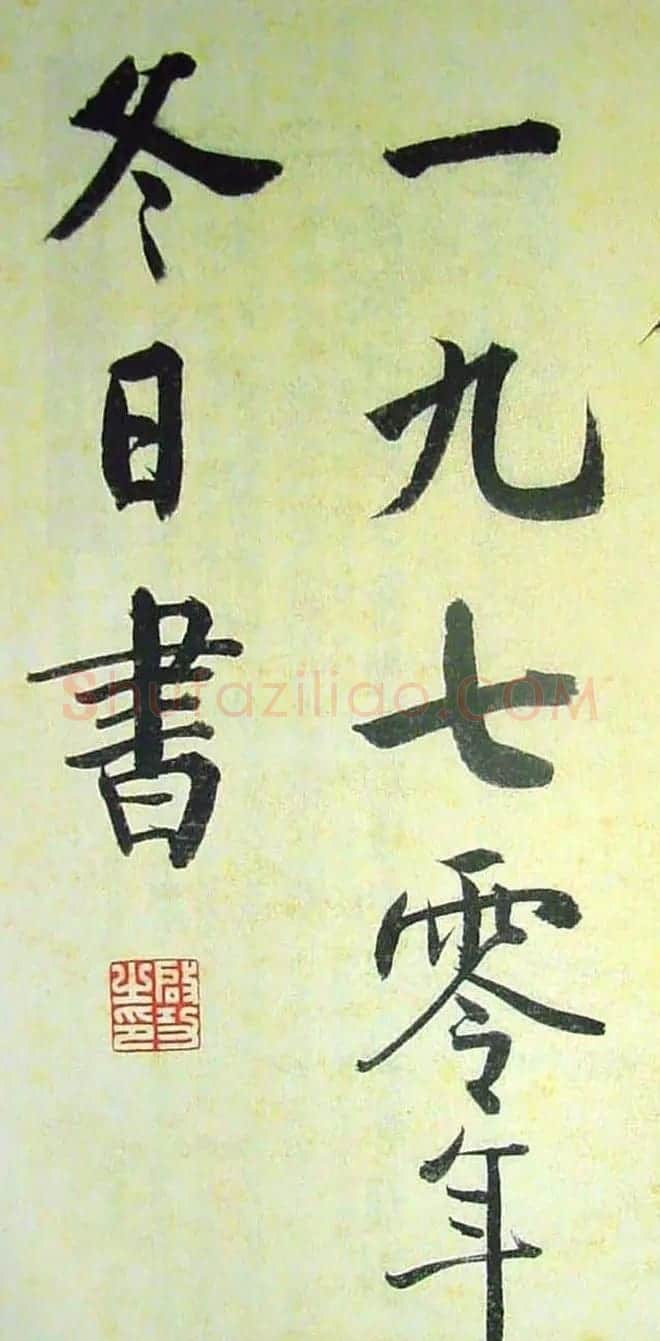 一九七零年
冬日書
啟功之印
Shufaziliao.COM